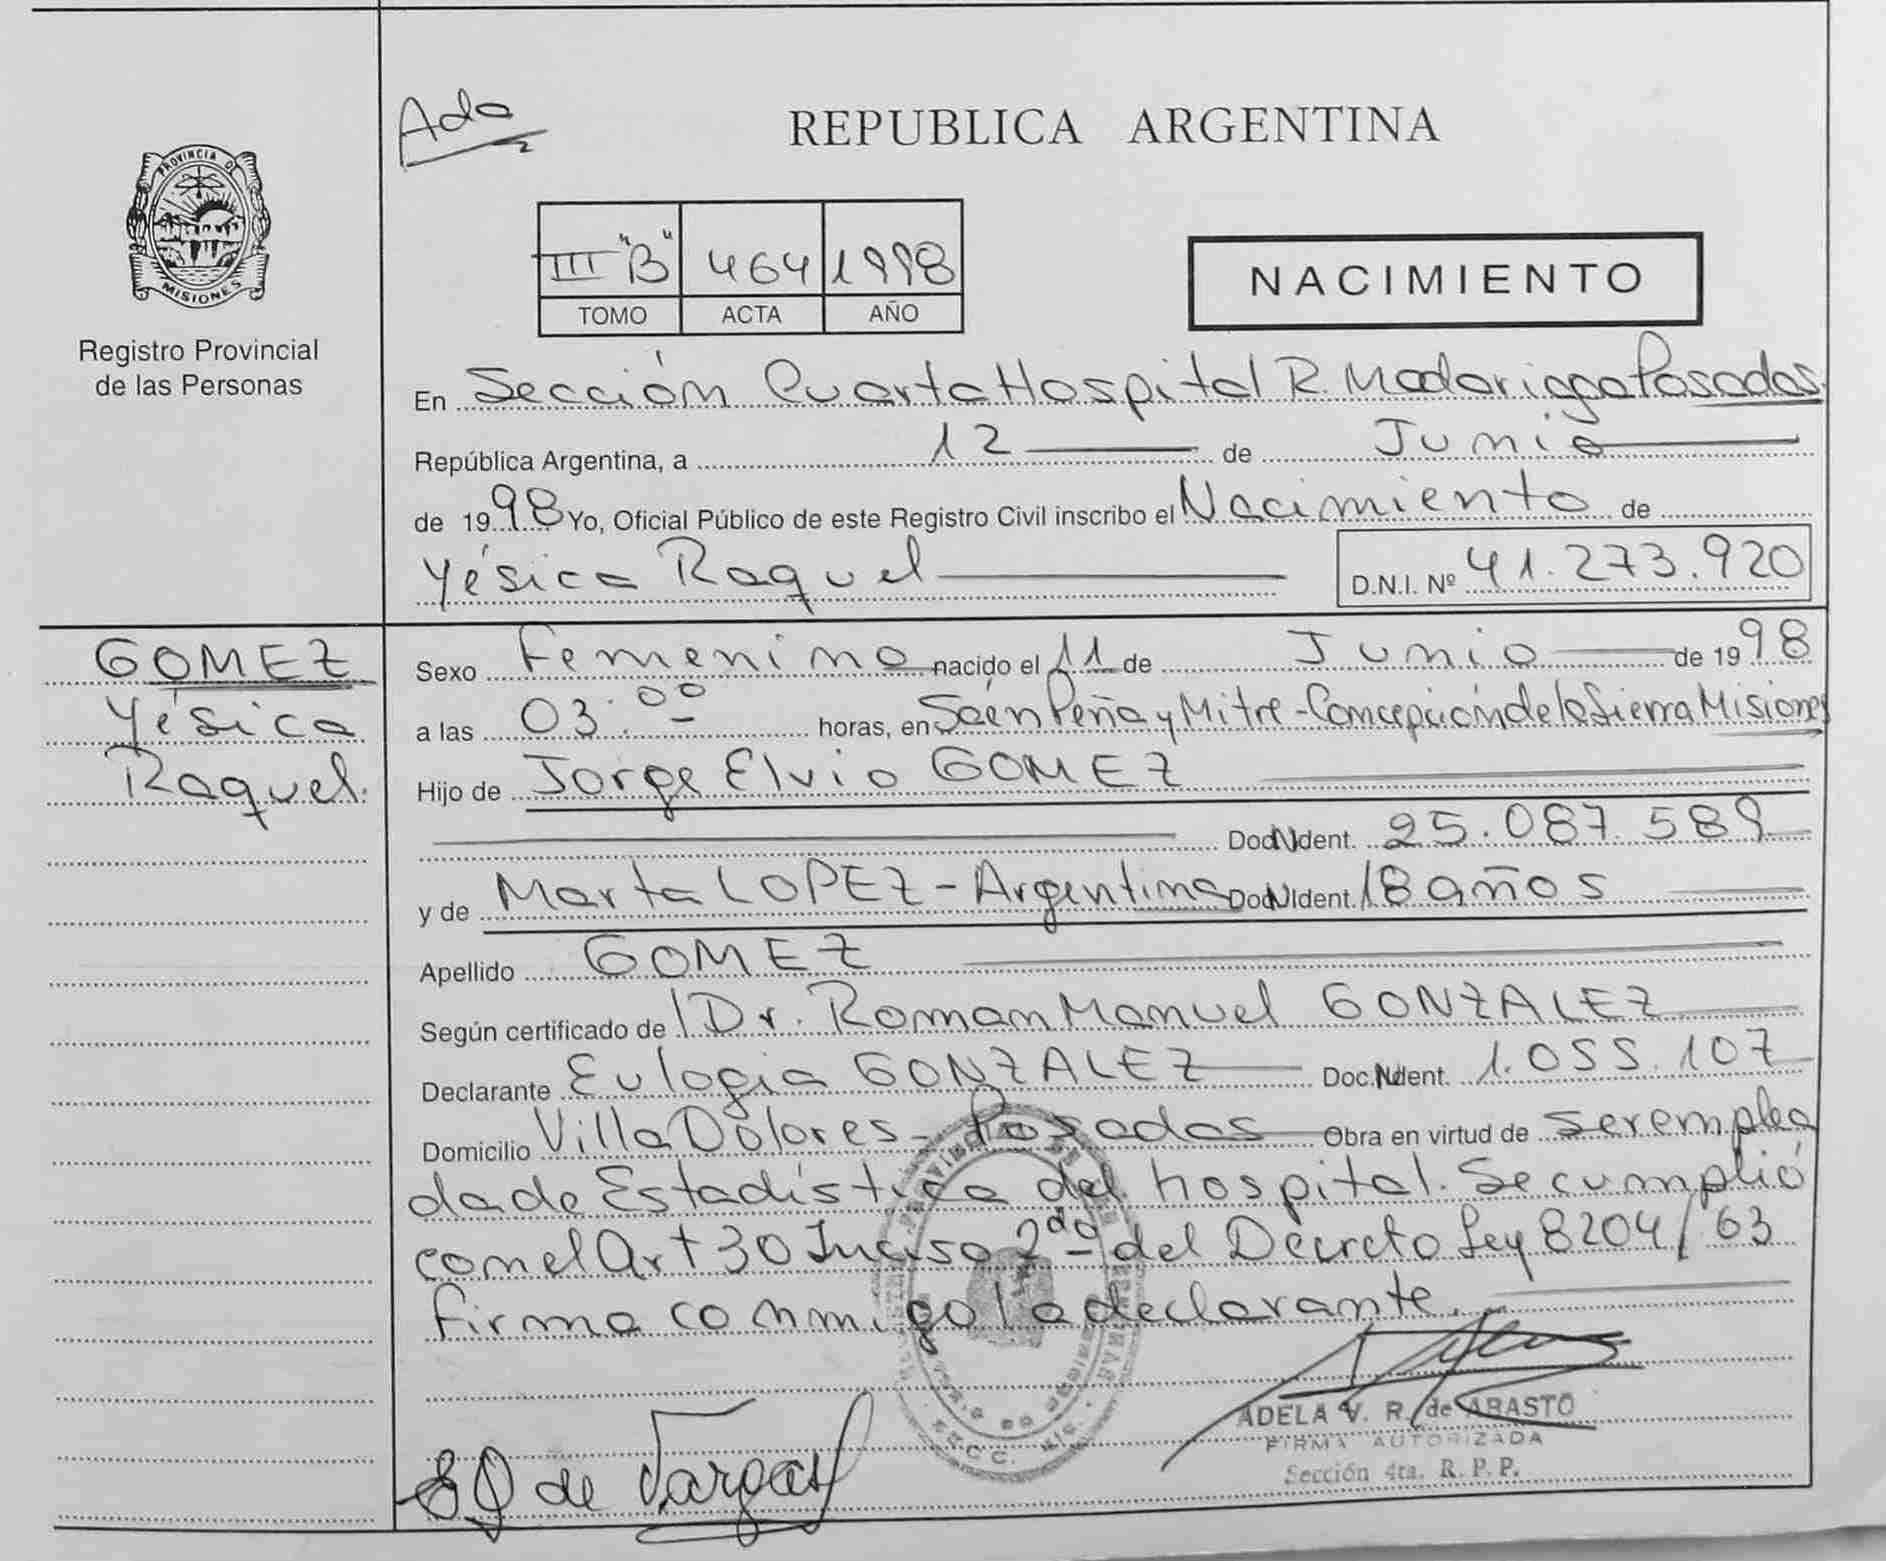 Ada
REPUBLICA ARGENTINA
PROVINCIA DE
MISIONES
Registro Provincial
de las Personas
III "B" 464 1998
TOMO ACTA AÑO
NACIMIENTO
En Sección Cuarta Hospital R. Madariaga Posadas.
República Argentina, a 12 de Junio
de 1998 Yo, Oficial Público de este Registro Civil inscribo el Nacimiento de
Yésica Raquel D.N.I. Nº 41.273.920
GOMEZ
Yésica
Raquel.
Sexo Femenino nacido el 11 de Junio de 1998
a las 03:00 horas, en Sáenz Peña y Mitre - Concepción de la Sierra Misiones
Hijo de Jorge Elvio GOMEZ
Doc. Ident. 25.087.589
y de Marta LOPEZ - Argentina Doc. Ident. 18 años
Apellido GOMEZ
Según certificado de Dr. Roman Manuel GONZALEZ
Declarante Eulogia GONZALEZ Doc. Ident. 1.055.107
Domicilio Villa Dolores - Posadas Obra en virtud de ser emplea
da de Estadística del hospital. Se cumplió
con el Art 30 Inciso 2do del Decreto Ley 8204/63
firma conmigo la declarante.
de Vargas
ADELA V. R. de ABASTO
FIRMA AUTORIZADA
Sección 4ta. R. P. P.